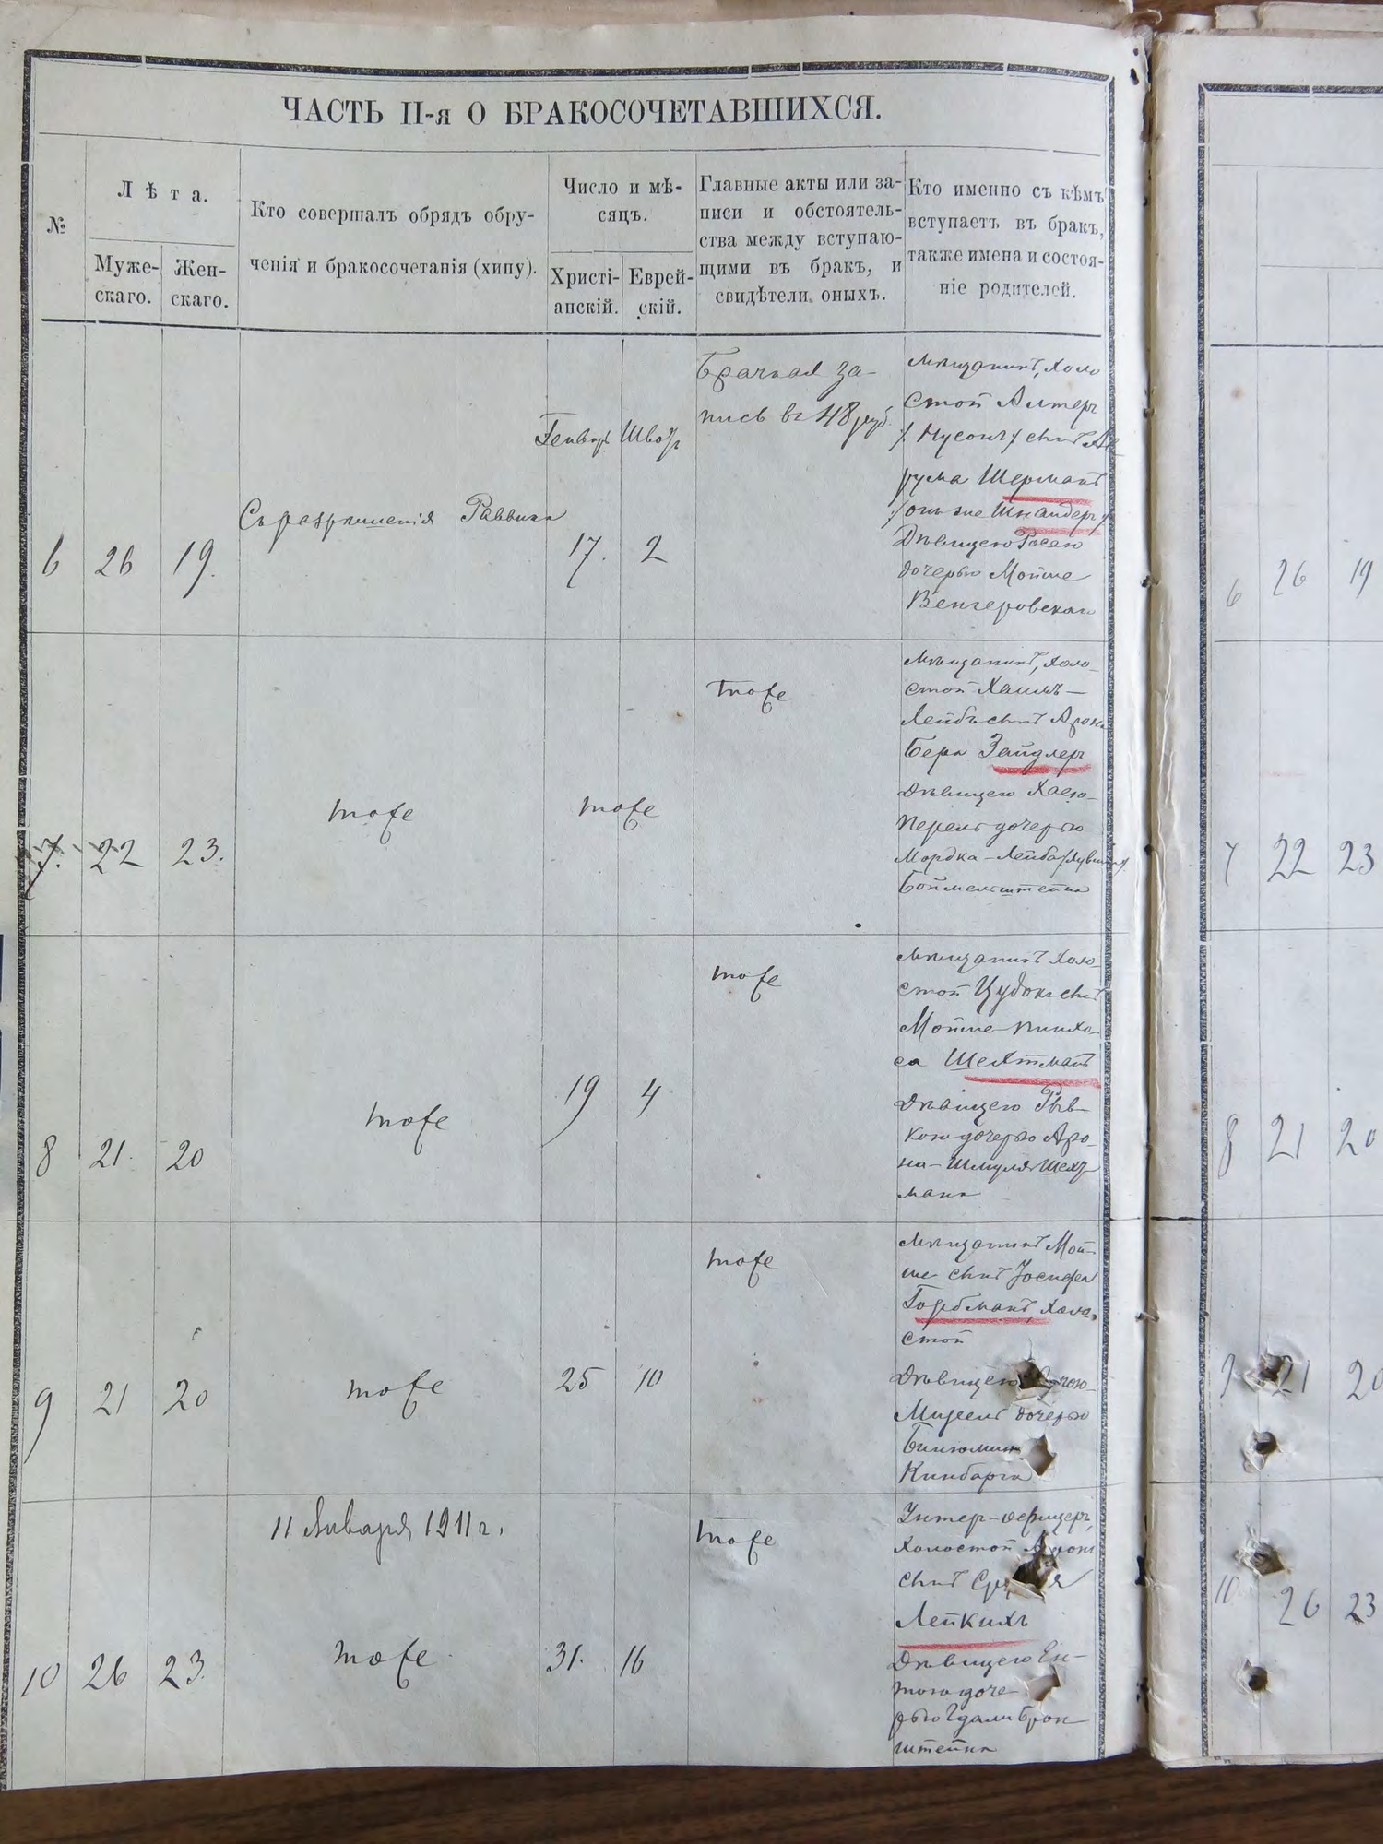 ЧАСТЬ II-я О БРАКОСОЧЕТАВШИХСЯ.
№
Лѣта.
Муже-
скаго.
Жен-
скаго.
Кто совершалъ обрядъ обру-
ченія и бракосочетанія (хипу).
Число и мѣ-
сяцъ.
Христі-
анскій.
Еврей-
скій.
Главные акты или за-
писи и обстоятель-
ства между вступаю-
щими въ бракъ, и
свидѣтели оныхъ.
Кто именно съ кѣмъ
вступаетъ въ бракъ,
также имена и состоя-
ніе родителей.
6 26 19.
Съ разрѣшенія Раввина
Генварь Шватъ
17. 2
Брачная за-
пись въ 48 руб.
Мѣщанинъ, холо
стой Алтеръ
сынъ
Шерманъ
онъ же Шнайдеръ
Дѣвицею
дочерью Мойше
Венгеровскаго
7. 22 23.
тоже
тоже
тоже
Мѣщанинъ, холо-
стой Хаимъ-
Лейбъ сынъ Арона
Бера Зайдлеръ
Дѣвицею Хаею-
Перель дочерью
Мордка-Лейба
Боймельштейна
8 21. 20
тоже
19 4
тоже
Мѣщанинъ холо-
стой сынъ
Мойше-Пинха-
са Шехтманъ
Дѣвицею Рыв-
кою дочерью Аро-
на-Шмуля
мана
9 21 20
тоже
25 10
тоже
Мѣщанинъ Мой-
ше сынъ Іосифа
Горбманъ, холо-
стой
Дѣвицею
Миреель дочерью
Кинбарга
11 Января 1911 г.
10 26 23.
тоже.
31. 16
тоже
Унтер-офицеръ,
холостой Аронъ
сынъ
Лейкихъ
Дѣвицею Ен-
тою доче-
рью Брон-
штейна
6 26 19
7 22 23
8 21 20
9 21 20
10 26 23